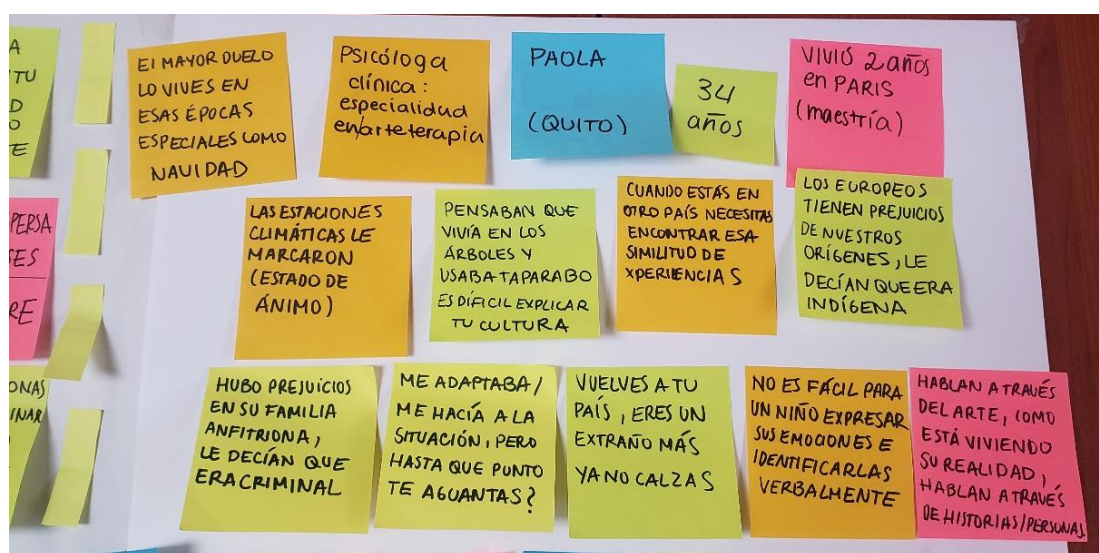 A
TU
D
O
TE
EL MAYOR DUELO
LO VIVES EN
ESAS ÉPOCAS
ESPECIALES COMO
NAVIDAD
PSICóloga
clínica:
especialidad
en/arteterapia
PAOLA
(QUITO)
34
años
VIVIÓ 2 años
en PARIS
(maestría)
PERSA
SES
RE
LAS ESTACIONES
CLIMÁTICAS LE
MARCARON
(ESTADO DE
ÁNIMO)
PENSABAN QUE
VIVÍA EN LOS
ÁRBOLES Y
USABA TAPARABO
ES DÍFICIL EXPLICAR
TU CULTURA
CUANDO ESTÁS EN
OTRO PAÍS NECESITAS
ENCONTRAR ESA
SIMILITUD DE
XPERIENCIAS
LOS EUROPEOS
TIENEN PREJUICIOS
DE NUESTROS
ORÍGENES, LE
DECÍAN QUE ERA
INDÍGENA
ONAS
INAR
HUBO PREJUICIOS
EN SU FAMILIA
ANFITRIONA,
LE DECÍAN QUE
ERA CRIMINAL
ME ADAPTABA /
ME HACÍA A LA
SITUACIÓN, PERO
HASTA QUE PUNTO
TE AGUANTAS?
VUELVES A TU
PAÍS, ERES UN
EXTRAÑO MÁS
YA NO CALZAS
NO ES FÁCIL PARA
UN NIÑO EXPRESAR
SUS EMOCIONES E
IDENTIFICARLAS
VERBALMENTE
HABLAN A TRAVÉS
DEL ARTE, COMO
ESTÁ VIVIENDO
SU REALIDAD,
HABLAN A TRAVÉS
DE HISTORIAS/PERSONAS